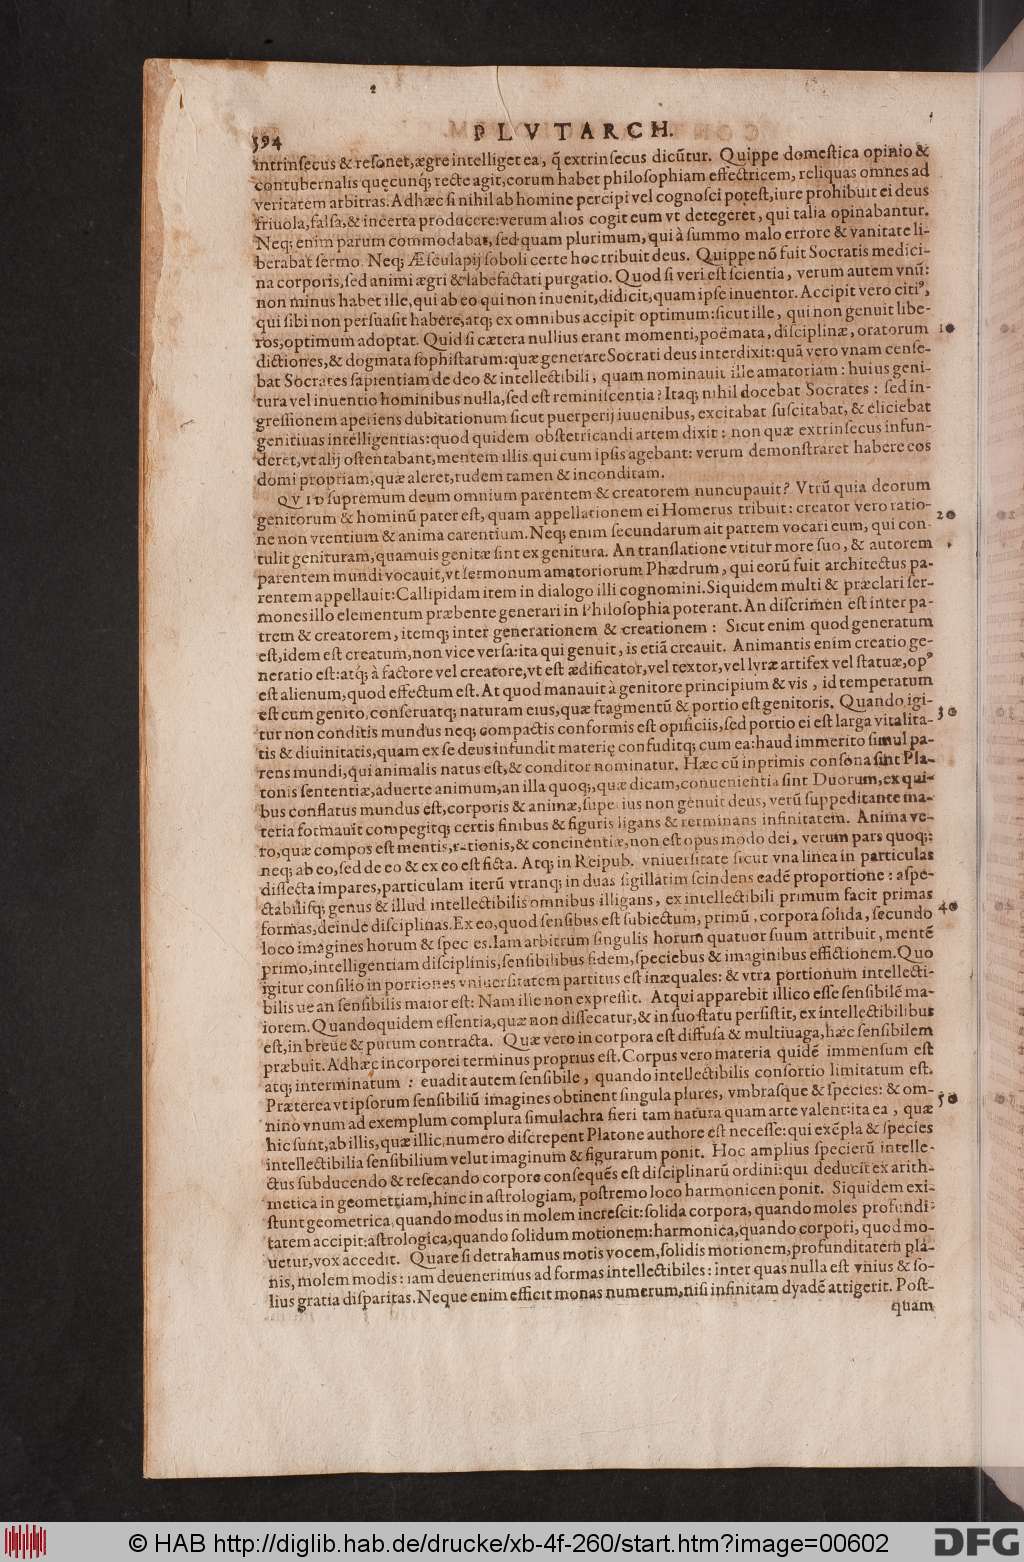 594
PLVTARCH.
intrinsecus & resonet, ægre intelliget ea, q̃ extrinsecus dicũtur. Quippe domestica opinio &
contubernalis quęcunq; recte agit, eorum habet philosophiam effectricem, reliquas omnes ad
veritatem arbitras. Adhæc si nihil ab homine percipi vel cognosci potest, iure prohibuit ei deus
friuola, falsa, & incerta producere: verum alios cogit eum vt detegeret, qui talia opinabantur.
Neq; enim parum commodabat, sed quam plurimum, qui à summo malo errore & vanitate li-
berabat sermo. Neq; Æsculapij soboli certe hoc tribuit deus. Quippe nõ fuit Socratis medici-
na corporis, sed animi ægri & labefactati purgatio. Quod si veri est scientia, verum autem vnũ:
non minus habet ille, qui ab eo qui non inuenit, didicit, quam ipse inuentor. Accipit vero citiꝰ,
qui sibi non persuasit habere, atq; ex omnibus accipit optimum: sicut ille, qui non genuit libe-
ros, optimum adoptat. Quid si cætera nullius erant momenti, poëmata, disciplinæ, oratorum 10
dictiones, & dogmata sophistarum: quæ generare Socrati deus interdixit: quã vero vnam cense-
bat Socrates sapientiam de deo & intellectibili, quam nominauit ille amatoriam: huius geni-
tura vel inuentio hominibus nulla, sed est reminiscentia? Itaq; nihil docebat Socrates: sed in-
gressionem aperiens dubitationum sicut puerperij iuuenibus, excitabat suscitabat, & eliciebat
genitiuas intelligentias: quod quidem obstetricandi artem dixit: non quæ extrinsecus infun-
deret, vt alij ostentabant, mentem illis qui cum ipsis agebant: verum demonstraret habere eos
domi propriam, quæ aleret, rudem tamen & inconditam.
QVID supremum deum omnium parentem & creatorem nuncupauit? Vtrũ quia deorum
genitorum & hominũ pater est, quam appellationem ei Homerus tribuit: creator vero ratio- 20
ne non vtentium & anima carentium. Neq; enim secundarum ait patrem vocari eum, qui con-
tulit genituram, quamuis genitæ sint ex genitura. An translatione vtitur more suo, & autorem
parentem mundi vocauit, vt sermonum amatoriorum Phædrum, qui eorũ fuit architectus pa-
rentem appellauit: Callipidam item in dialogo illi cognomini. Siquidem multi & præclari ser-
mones illo elementum præbente generari in Philosophia poterant. An discrimen est inter pa-
trem & creatorem, itemq; inter generationem & creationem: Sicut enim quod generatum
est, idem est creatum, non vice versa: ita qui genuit, is etiã creauit. Animantis enim creatio ge-
neratio est: atq; à factore vel creatore, vt est ædificator, vel textor, vel lyræ artifex vel statuæ, opꝰ
est alienum, quod effectum est. At quod manauit à genitore principium & vis, id temperatum
est cum genito, conseruatq; naturam eius, quæ fragmentũ & portio est genitoris. Quando igi-
tur non conditis mundus neq; compactis conformis est opificiis, sed portio ei est larga vitalita- 30
tis & diuinitatis, quam ex se deus infundit materię confuditq; cum ea: haud immerito simul pa-
rens mundi, qui animalis natus est, & conditor nominatur. Hæc cũ inprimis consona sint Pla-
tonis sententiæ, aduerte animum, an illa quoq;, quæ dicam, conuenientia sint Duorum, ex qui-
bus conflatus mundus est, corporis & animæ, superius non genuit deus, verũ suppeditante ma-
teria formauit compegitq; certis finibus & figuris ligans & terminans infinitatem. Anima ve-
ro, quæ compos est mentis, rationis, & concinentiæ, non est opus modo dei, verum pars quoq;:
neq; ab eo, sed de eo & ex eo est ficta. Atq; in Reipub. vniuersitate sicut vna linea in particulas
dissecta impares, particulam iterũ vtranq; in duas sigillatim scindens eadẽ proportione: aspe-
ctabilisq; genus & illud intellectibilis omnibus illigans, ex intellectibili primum facit primas
formas, deinde disciplinas. Ex eo, quod sensibus est subiectum, primũ, corpora solida, secundo 40
loco imagines horum & species. Iam arbitrum singulis horum quatuor suum attribuit, mentẽ
primo, intelligentiam disciplinis, sensibilibus fidem, speciebus & imaginibus effictionem. Quo
igitur consilio in portiones vniuersitatem partitus est inæquales: & vtra portionum intellecti-
bilis ue an sensibilis maior est: Nam ille non expressit. Atqui apparebit illico esse sensibilẽ ma-
iorem. Quandoquidem essentia, quæ non dissecatur, & in suo statu persistit, ex intellectibilibus
est, in breue & purum contracta. Quæ vero in corpora est diffusa & multiuaga, hæc sensibilem
præbuit. Adhæc incorporei terminus proprius est. Corpus vero materia quidẽ immensum est
atq; interminatum: euadit autem sensibile, quando intellectibilis consortio limitatum est.
Præterea vt ipsorum sensibiliũ imagines obtinent singula plures, vmbrasque & species: & om- 50
nino vnum ad exemplum complura simulachra fieri tam natura quam arte valent: ita ea, quæ
hic sunt, ab illis, quæ illic, numero discrepent Platone authore est necesse: qui exẽpla & species
intellectibilia sensibilium velut imaginum & figurarum ponit. Hoc amplius specierũ intelle-
ctus subducendo & resecando corpore consequẽs est disciplinarũ ordini: qui deducit ex arith-
metica in geometriam, hinc in astrologiam, postremo loco harmonicen ponit. Siquidem exi-
stunt geometrica, quando modus in molem increscit: solida corpora, quando moles profundi-
tatem accipit: astrologica, quando solidum motionem: harmonica, quando corpori, quod mo-
uetur, vox accedit. Quare si detrahamus motis vocem, solidis motionem, profunditatem pla-
nis, molem modis: iam deuenerimus ad formas intellectibiles: inter quas nulla est vnius & so-
lius gratia disparitas. Neque enim efficit monas numerum, nisi infinitam dyadẽ attigerit. Post-
quam
© HAB http://diglib.hab.de/drucke/xb-4f-260/start.htm?image=00602
DFG